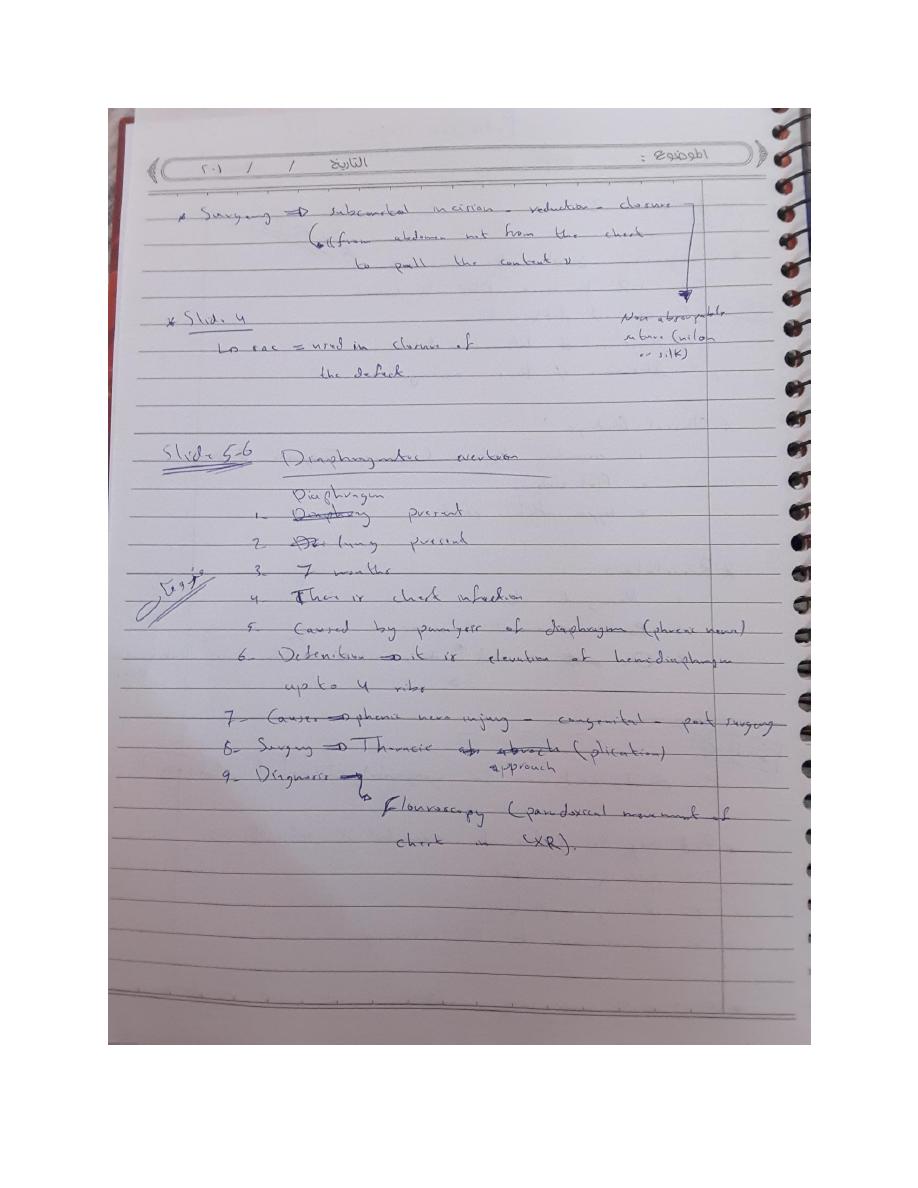 الموضوع : التاريخ / / ٢٠١
* Surgery ⇒ subcostal incision - reduction - closure
(from abdomen not from the chest
to pull the content "
Non absorpable
suture (nilon
or silk)
* Slide 4
↳ sac = used in closure of
the defect
Slide 5-6 Diaphragmatic evertion
Diaphragm
1- present
2- lung present
3- 7 months
4- There is chest infection
5- Caused by paralysis of diaphragm (phrenic nerve)
6- Defenition → it is elevation of hemidiaphragm
up to 4 ribs
7- Causes ⇒ phrenic nerve injury - congenital - post surgery
8- Surgery ⇒ Thoracic approach (plication)
9- Diagnosis
↳ Flouroscopy (paradoxical movement of
chest in CXR).